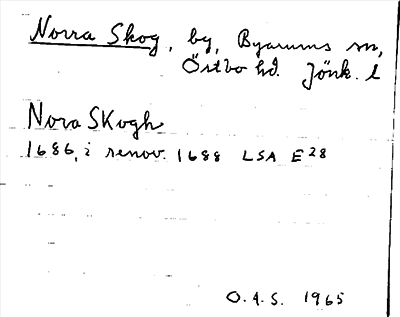 Norra Skog, by, Byarums sn,
Östbo hd. Jönk. l
Nora Skogh
1686, i renov. 1688 LSA E28
O.A.S. 1965